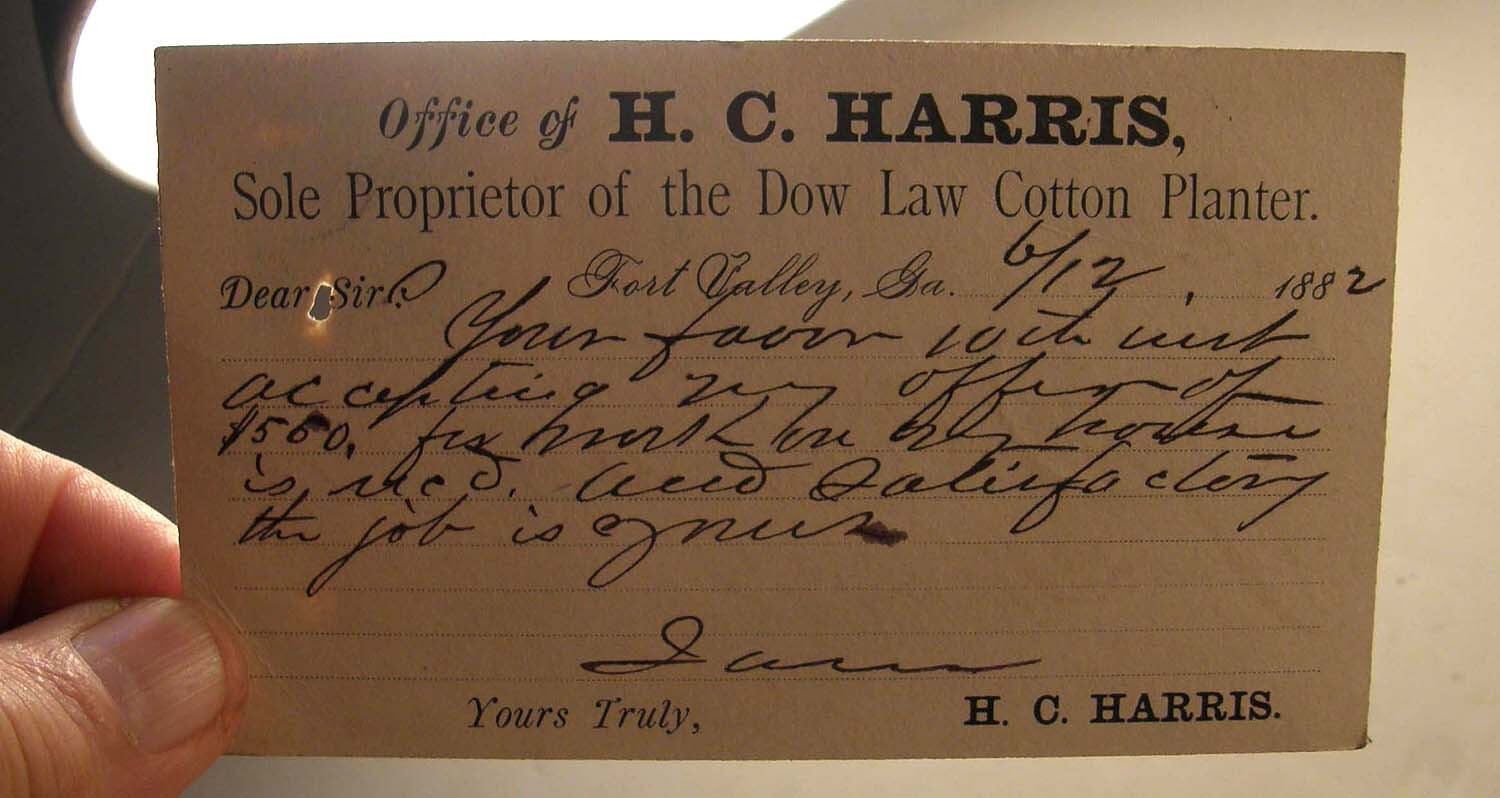 Office of H. C. HARRIS,
Sole Proprietor of the Dow Law Cotton Planter.
Fort Valley, Ga. 6/12, 1882
Dear Sir:
Your favor 10th inst
accepting my offer of
$550, for work on my house
is recd. and satisfactory
the job is yours
I am
Yours Truly, H. C. HARRIS.